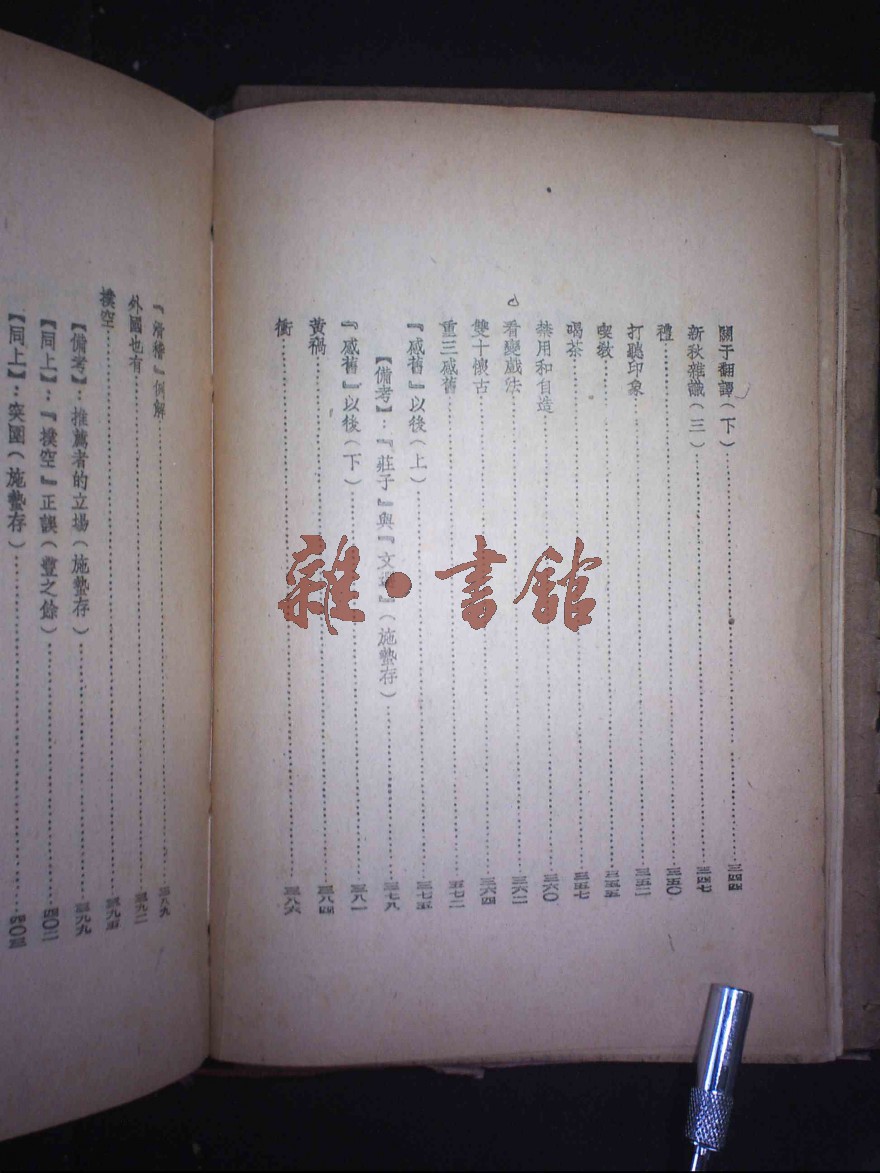 關于翻譯（下）……三四四
新秋雜識（三）……三四七
禮……三五〇
打聽印象……三五二
喫教……三五五
喝茶……三五七
禁用和自造……三六〇
看變戲法……三六二
雙十懷古……三六四
重三感舊……五七二
『感舊』以後（上）……三七五
【備考】：『莊子』與『文選』（施蟄存）……三七八
『感舊』以後（下）……三八一
黃禍……三八四
衝……三八六
『滑稽』例解……三八九
外國也有……三九二
撲空……三九五
【備考】：推薦者的立場（施蟄存）……三九九
【同上】：『撲空』正誤（豐之餘）……四〇二
【同上】：突圍（施蟄存）……四〇三
雜·書館